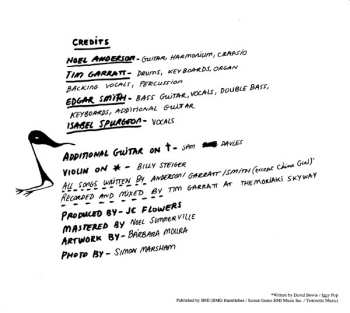 CREDITS
NOEL ANDERSON - GUITAR, HARMONIUM, CRAPSIO
TIM GARRATT - DRUMS, KEYBOARDS, ORGAN
BACKING VOCALS, PERCUSSION
EDGAR SMITH - BASS GUITAR, VOCALS, DOUBLE BASS,
KEYBOARDS, ADDITIONAL GUITAR
ISABEL SPURGEON - VOCALS
ADDITIONAL GUITAR ON † - SAM DAVIES
VIOLIN ON * - BILLY STEIGER
ALL SONGS WRITTEN BY ANDERSON/GARRATT/SMITH (except China Girl)*
RECORDED AND MIXED BY TIM GARRATT AT THE MORIAKI SKYWAY
PRODUCED BY - JC FLOWERS
MASTERED BY NOEL SUMMERVILLE
ARTWORK BY - BÁRBARA MOURA
PHOTO BY - SIMON MARSHAM
*Written by David Bowie / Iggy Pop
Published by BMG (BMG Rumblefish / Screen Gems-EMI Music Inc. / Tintoretto Music)